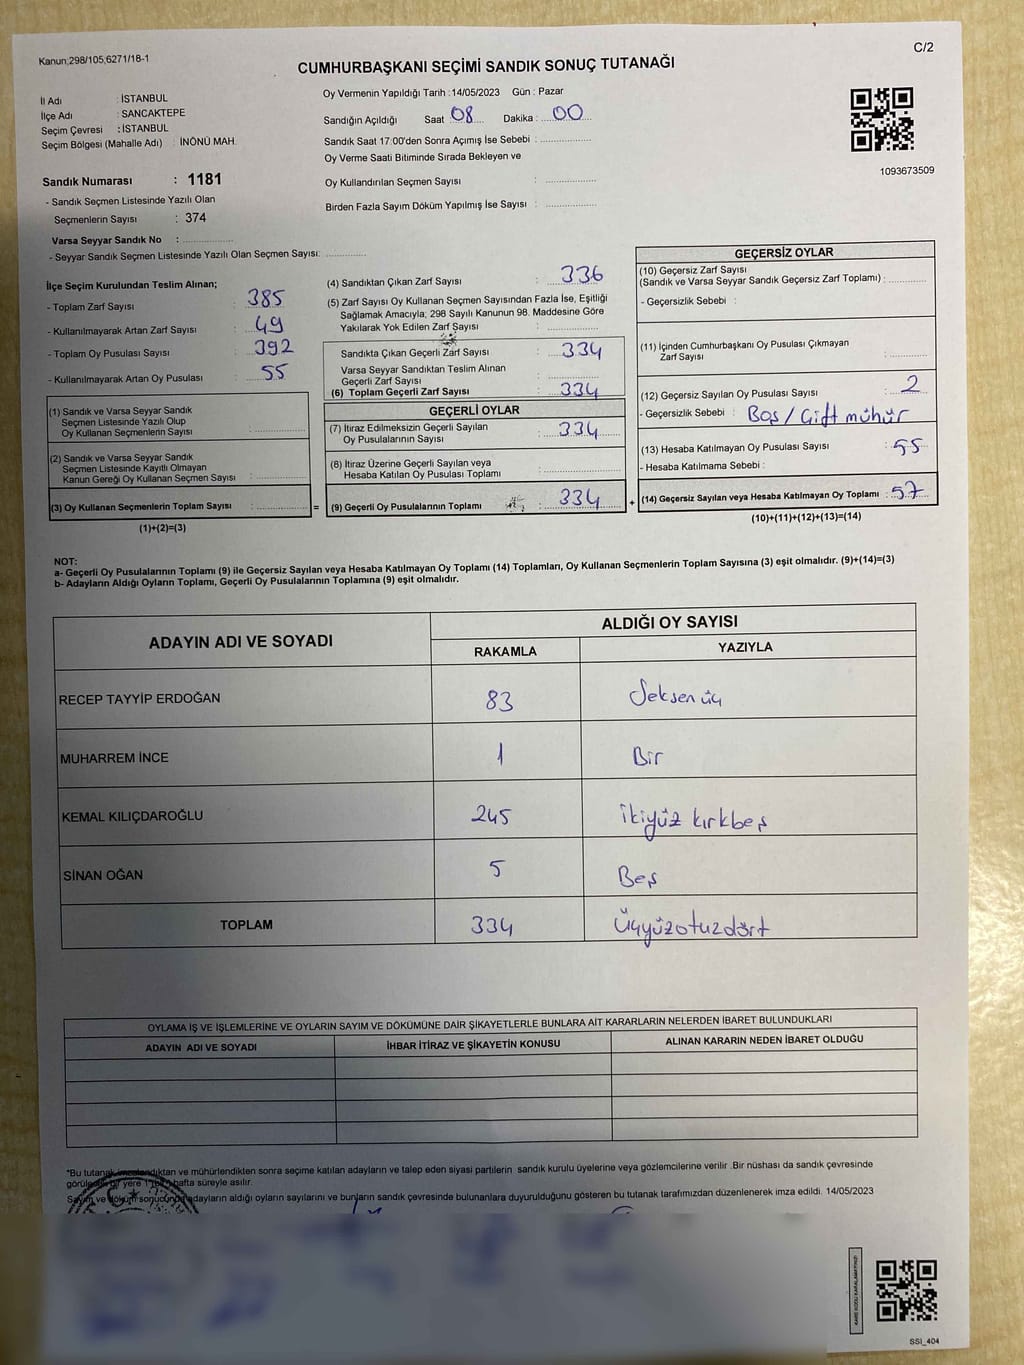 Kanun;298/105,6271/18-1
C/2
CUMHURBAŞKANI SEÇİMİ SANDIK SONUÇ TUTANAĞI
İl Adı : İSTANBUL
İlçe Adı : SANCAKTEPE
Seçim Çevresi : İSTANBUL
Seçim Bölgesi (Mahalle Adı) : İNÖNÜ MAH.
Oy Vermenin Yapıldığı Tarih :14/05/2023 Gün : Pazar
Sandığın Açıldığı Saat 08 Dakika : 00
Sandık Saat 17:00'den Sonra Açımış İse Sebebi :
Oy Verme Saati Bitiminde Sırada Bekleyen ve
Oy Kullandırılan Seçmen Sayısı :
Birden Fazla Sayım Döküm Yapılmış İse Sayısı :
1093673509
Sandık Numarası : 1181
- Sandık Seçmen Listesinde Yazılı Olan
Seçmenlerin Sayısı : 374
Varsa Seyyar Sandık No :
- Seyyar Sandık Seçmen Listesinde Yazılı Olan Seçmen Sayısı:
İlçe Seçim Kurulundan Teslim Alınan;
- Toplam Zarf Sayısı : 385
- Kullanılmayarak Artan Zarf Sayısı : 49
- Toplam Oy Pusulası Sayısı : 392
- Kullanılmayarak Artan Oy Pusulası : 55
(1) Sandık ve Varsa Seyyar Sandık
Seçmen Listesinde Yazılı Olup
Oy Kullanan Seçmenlerin Sayısı :
(2) Sandık ve Varsa Seyyar Sandık
Seçmen Listesinde Kayıtlı Olmayan
Kanun Gereği Oy Kullanan Seçmen Sayısı :
(3) Oy Kullanan Seçmenlerin Toplam Sayısı :
(1)+(2)=(3)
(4) Sandıktan Çıkan Zarf Sayısı : 336
(5) Zarf Sayısı Oy Kullanan Seçmen Sayısından Fazla İse, Eşitliği
Sağlamak Amacıyla; 298 Sayılı Kanunun 98. Maddesine Göre
Yakılarak Yok Edilen Zarf Sayısı :
Sandıkta Çıkan Geçerli Zarf Sayısı : 334
Varsa Seyyar Sandıktan Teslim Alınan
Geçerli Zarf Sayısı :
(6) Toplam Geçerli Zarf Sayısı : 334
GEÇERLİ OYLAR
(7) İtiraz Edilmeksizin Geçerli Sayılan
Oy Pusulalarının Sayısı : 334
(8) İtiraz Üzerine Geçerli Sayılan veya
Hesaba Katılan Oy Pusulası Toplamı :
= (9) Geçerli Oy Pusulalarının Toplamı : 334 +
GEÇERSİZ OYLAR
(10) Geçersiz Zarf Sayısı
(Sandık ve Varsa Seyyar Sandık Geçersiz Zarf Toplamı) :
- Geçersizlik Sebebi :
(11) İçinden Cumhurbaşkanı Oy Pusulası Çıkmayan
Zarf Sayısı :
(12) Geçersiz Sayılan Oy Pusulası Sayısı : 2
- Geçersizlik Sebebi : Boş / Çift mühür
(13) Hesaba Katılmayan Oy Pusulası Sayısı : 55
- Hesaba Katılmama Sebebi :
(14) Geçersiz Sayılan veya Hesaba Katılmayan Oy Toplamı : 57
(10)+(11)+(12)+(13)=(14)
NOT:
a- Geçerli Oy Pusulalarının Toplamı (9) ile Geçersiz Sayılan veya Hesaba Katılmayan Oy Toplamı (14) Toplamları, Oy Kullanan Seçmenlerin Toplam Sayısına (3) eşit olmalıdır. (9)+(14)=(3)
b- Adayların Aldığı Oyların Toplamı, Geçerli Oy Pusulalarının Toplamına (9) eşit olmalıdır.
ADAYIN ADI VE SOYADI
ALDIĞI OY SAYISI
RAKAMLA YAZIYLA
RECEP TAYYİP ERDOĞAN 83 Seksen üç
MUHARREM İNCE 1 Bir
KEMAL KILIÇDAROĞLU 245 ikiyüz kırkbeş
SİNAN OĞAN 5 Beş
TOPLAM 334 Üçyüzotuzdört
OYLAMA İŞ VE İŞLEMLERİNE VE OYLARIN SAYIM VE DÖKÜMÜNE DAİR ŞİKAYETLERLE BUNLARA AİT KARARLARIN NELERDEN İBARET BULUNDUKLARI
ADAYIN ADI VE SOYADI İHBAR İTİRAZ VE ŞİKAYETİN KONUSU ALINAN KARARIN NEDEN İBARET OLDUĞU
*Bu tutanak imzalandıktan ve mühürlendikten sonra seçime katılan adayların ve talep eden siyasi partilerin sandık kurulu üyelerine veya gözlemcilerine verilir .Bir nüshası da sandık çevresinde
yere 1 hafta süreyle asılır.
Sayım ve döküm sonucunda adayların aldığı oyların sayılarını ve bunların sandık çevresinde bulunanlara duyurulduğunu gösteren bu tutanak tarafımızdan düzenlenerek imza edildi. 14/05/2023
SSI_404